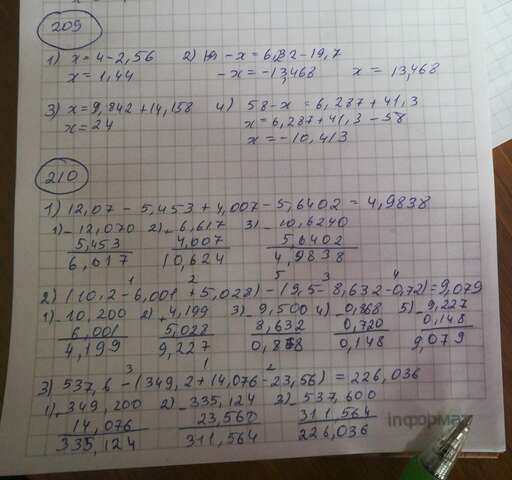 209
1) x = 4 - 2,56 2) - x = 6,232 - 19,7
x = 1,44 - x = - 13,468 x = 13,468
3) x = 9,842 + 14,158 4) 58 - x = 6,287 + 41,3
x = 24 x = 6,287 + 41,3 - 58
x = - 10,413
210
1) 12,07 - 5,453 + 4,007 - 5,6402 = 4,9838
1) - 12,070 2) + 6,617 3) - 10,6240
5,453 4,007 5,6402
6,617 10,624 4,9838
1 2 5 3 4
2) (10,2 - 6,001 + 5,028) - (9,5 - 8,632 - 0,72) = 9,079
1) - 10,200 2) + 4,199 3) - 9,500 4) - 0,868 5) - 9,227
6,001 5,028 8,632 0,720 0,148
4,199 9,227 0,868 0,148 9,079
3 1 2
3) 537,6 - (349,2 + (14,076 - 23,56) = 226,036
1) - 349,200 2) - 335,124 3) - 537,600
14,076 23,560 311,564
335,124 311,564 226,036
інформат